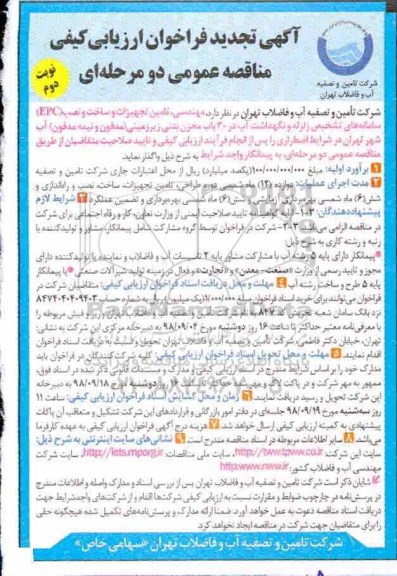 آگهی تجدید فراخوان ارزیابی کیفی
مناقصه عمومی دو مرحله‌ای
نوبت
دوم
شرکت تأمین و تصفیه
آب و فاضلاب تهران
شرکت تأمین و تصفیه آب و فاضلاب تهران در نظر دارد، مهندسی، تامین تجهیزات و ساخت و نصب (EPC)
سامانه‌های تشخیص زلزله و نگهداشت آب در ۳۰ باب مخزن بتنی زیرزمینی (مدفون و نیمه مدفون) آب
شهر تهران در شرایط اضطراری را پس از انجام فرآیند ارزیابی کیفی و تایید صلاحیت متقاضیان از طریق
مناقصه عمومی دو مرحله‌ای، به پیمانکار واجد شرایط به شرح ذیل واگذار نماید.
۱ برآورد اولیه: مبلغ ۱۰۰/۰۰۰/۰۰۰/۰۰۰ (یکصد میلیارد) ریال از محل اعتبارات جاری شرکت تامین و تصفیه
۲ مدت اجرای عملیات: دوازده (۱۲) ماه شمسی دوره طراحی، تامین تجهیزات، ساخت، نصب و راه‌اندازی و
شش (۶) ماه شمسی بهره‌برداری آزمایشی و شش (۶) ماه شمسی بهره‌برداری و تضمین عملکرد ۳ شرایط لازم
پیشنهاددهندگان: ۱-۳- گواهینامه تایید صلاحیت ایمنی از وزارت تعاون، کار و رفاه اجتماعی برای شرکت
در مناقصه الزامی می‌باشد. ۲-۳- شرکت در فراخوان توسط گروه مشارکت شامل پیمانکار، مشاور و تولیدکننده با
رتبه و رشته کاری به شرح ذیل:
پیمانکار دارای پایه ۵ رشته آب با مشارکت مشاور پایه ۲ تاسیسات آب و فاضلاب و نماینده یا تولیدکننده دارای
مجوز و تایید رسمی از وزارت «صنعت، معدن و تجارت» و فعال در زمینه تولید شیرآلات صنعتی یا پیمانکار
پایه ۵ طرح و ساخت رشته آب ۴ مهلت و محل دریافت اسناد فراخوان ارزیابی کیفی: متقاضیان شرکت در
فراخوان می‌توانند برای خرید اسناد فراخوان مبلغ ۱/۰۰۰/۰۰۰ (یک میلیون) ریال به شماره حساب
نزد بانک سامان شعبه
با معرفی‌نامه معتبر حداکثر تا ساعت ۱۶ روز دوشنبه مورخ ۹۸/۰۹/۰۴ به دبیرخانه مرکزی این شرکت به نشانی:
تهران، خیابان دکتر فاطمی، شرکت تأمین و تصفیه آب و فاضلاب تهران تحویل و نسبت به دریافت اسناد فراخوان
اقدام نمایند. ۵ مهلت و محل تحویل اسناد فراخوان ارزیابی کیفی: کلیه شرکت‌کنندگان در فراخوان باید
مدارک خود را بر اساس شرایط مندرج در اسناد ارزیابی کیفی و مدارک و مستندات قانونی ذکر شده در اسناد فوق
ممهور به مهر شرکت و در پاکت لاک و مهر شده حداکثر تا ساعت ۱۶ روز دوشنبه مورخ ۹۸/۰۹/۱۸ به دبیرخانه
این شرکت تحویل و رسید دریافت نمایند. ۶ زمان و محل گشایش اسناد فراخوان ارزیابی کیفی: ساعت ۱۱
روز سه‌شنبه مورخ ۹۸/۰۹/۱۹ جلسه‌ای در دفتر امور بازرگانی و قراردادهای این شرکت تشکیل و متعاقب آن پاکات
پیشنهادی به کمیته ارزیابی کیفی ارسال خواهد شد. ۷ هزینه درج آگهی فراخوان ارزیابی کیفی به عهده کارفرما
می‌باشد. ۸ سایر اطلاعات مربوطه در اسناد مناقصه مندرج است ۹ نشانی‌های سایت اینترنتی به شرح ذیل:
سایت این شرکت: http://tww.tpww.co.ir، سایت ملی مناقصات: http://iets.mporg.ir، سایت شرکت
مهندسی آب و فاضلاب کشور: http:www.nww.ir
شایان ذکر است شرکت تامین و تصفیه آب و فاضلاب تهران پس از بررسی اسناد و مدارک واصله و اطلاعات مندرج
در پرسش‌نامه در چارچوب ضوابط و مقررات نسبت به ارزیابی کیفی شرکت‌ها اقدام و از شرکت‌های واجد شرایط جهت
دریافت اسناد مناقصه دعوت به عمل خواهد آورد. ضمنا ارائه مدارک و پرسش‌نامه‌های تکمیل شده هیچگونه حقی
را برای متقاضیان جهت شرکت در مناقصه ایجاد نخواهد کرد.
شرکت تامین و تصفیه آب و فاضلاب تهران «سهامی خاص»